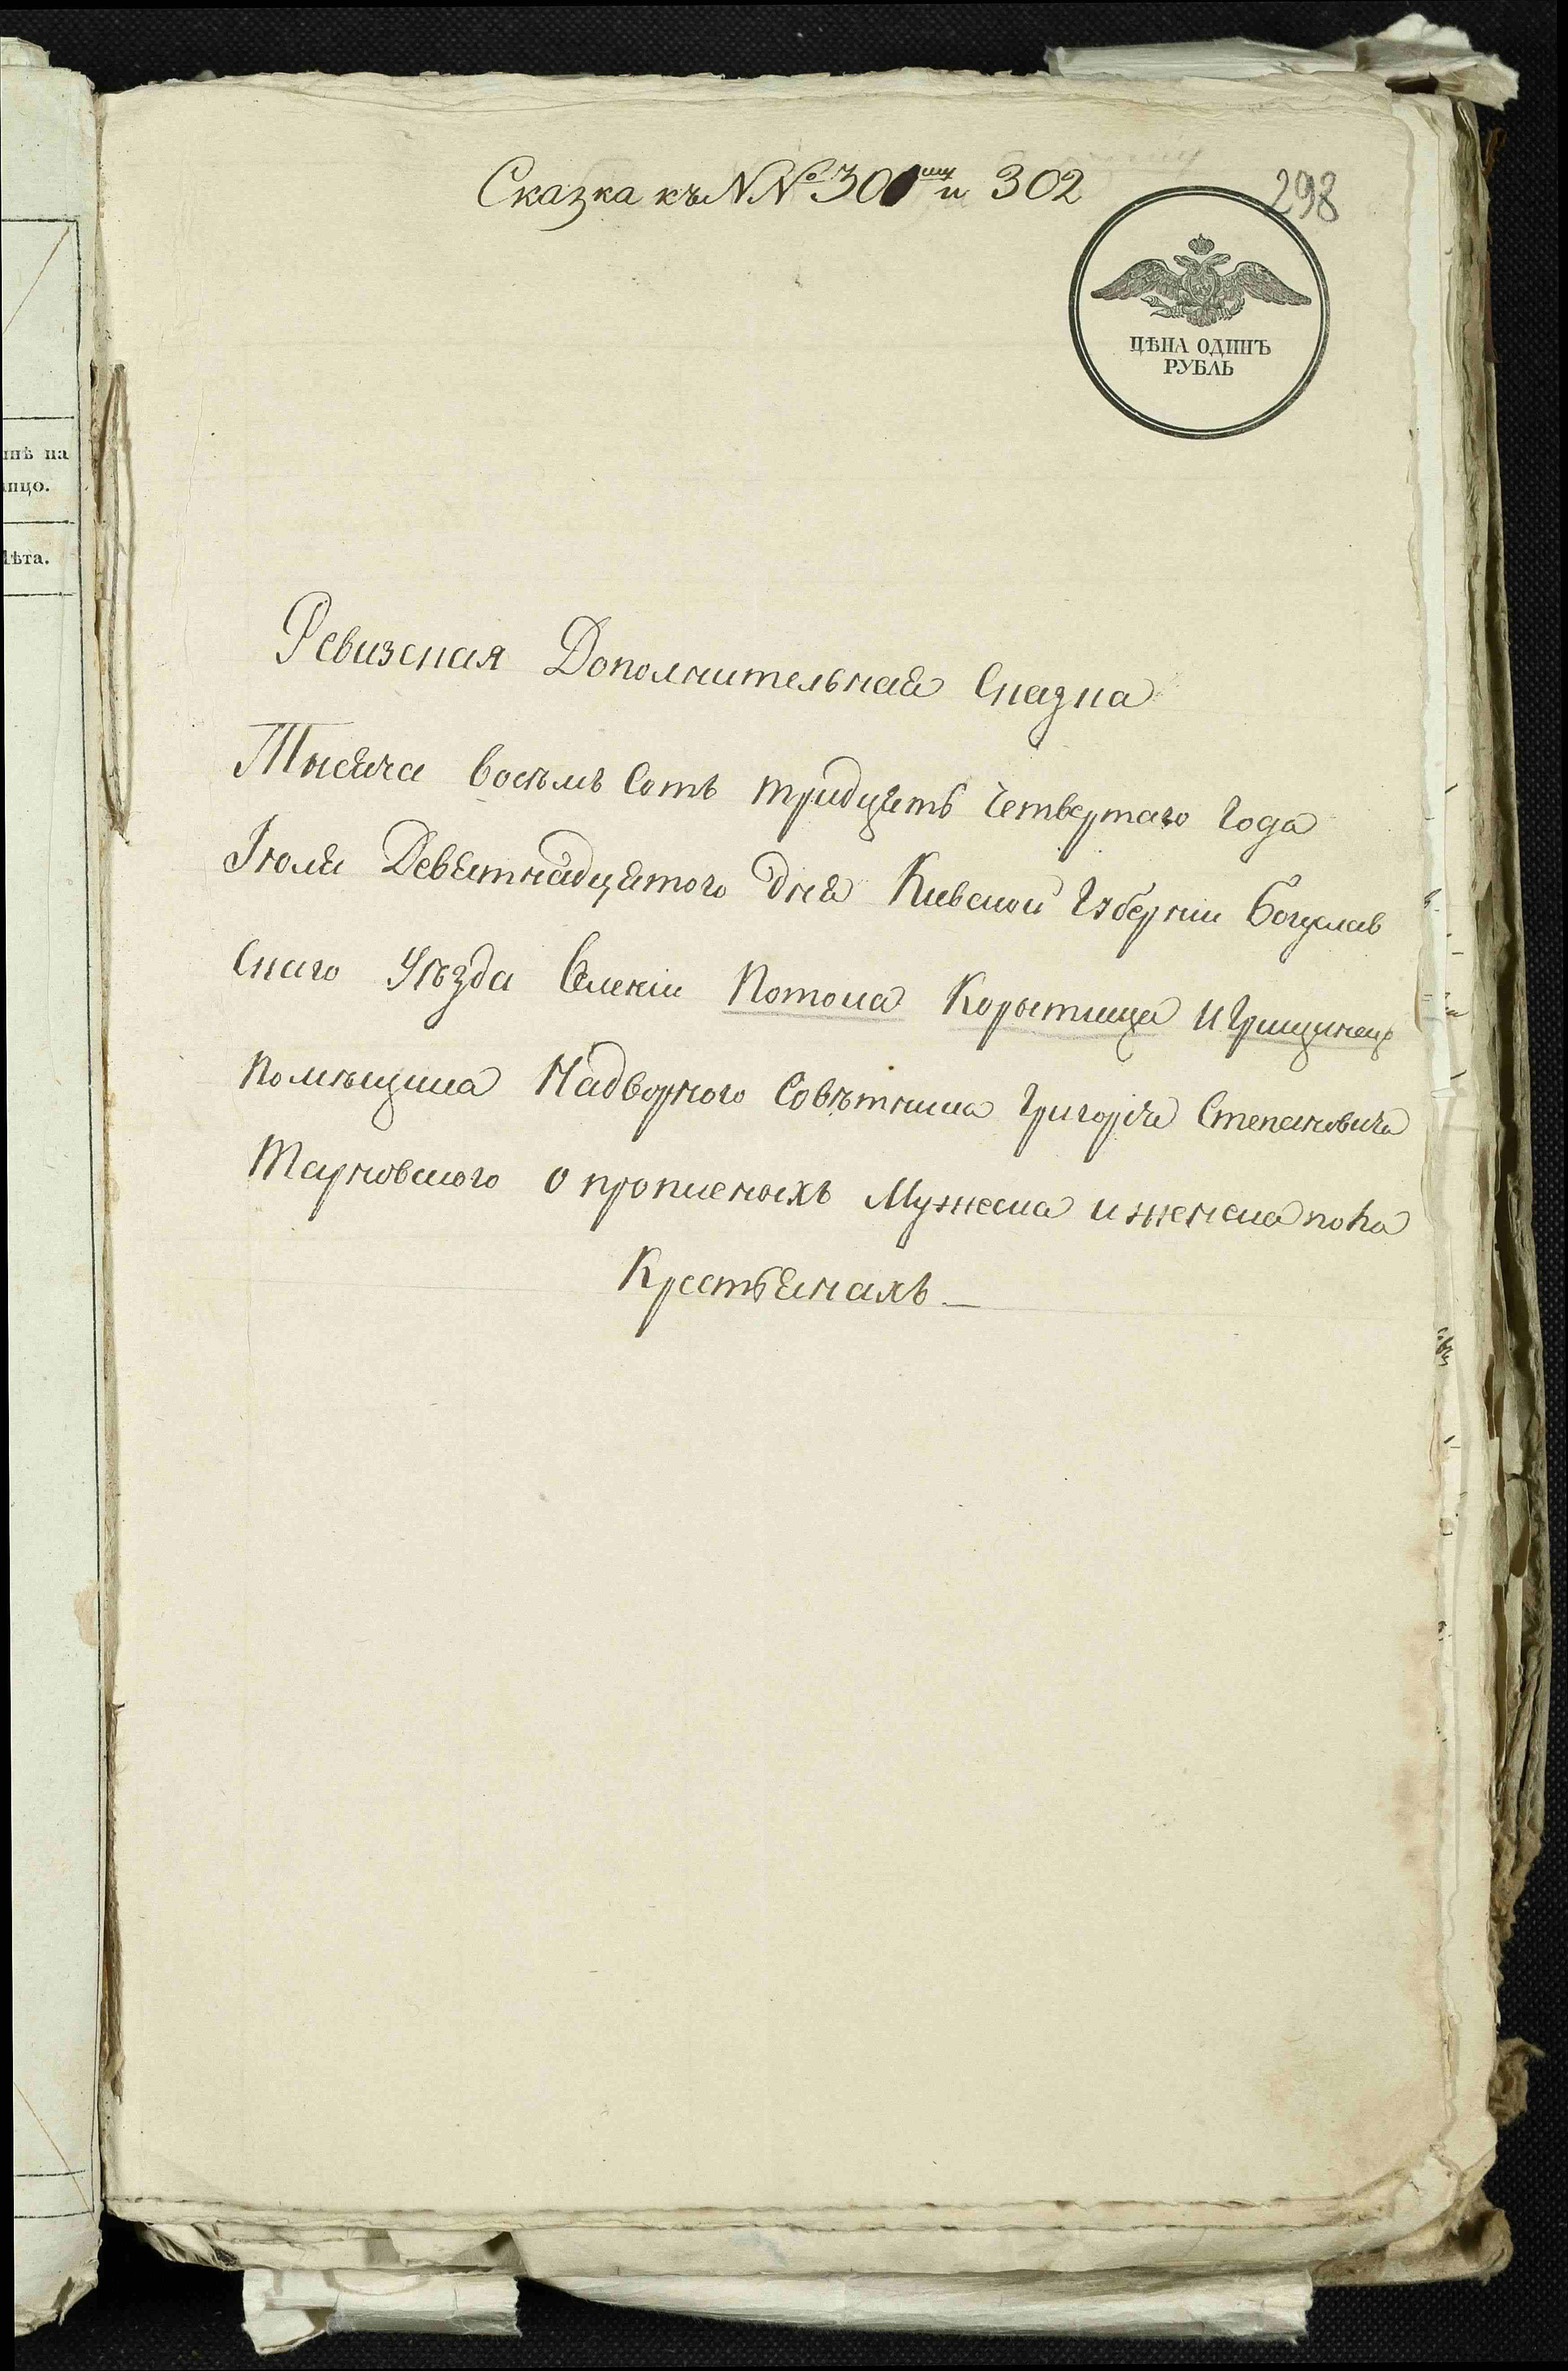 Сказка къ NN° 301му и 302
298
ЦѢНА ОДИНЪ
РУБЛЬ
нѣ на
лицо.
Лѣта.
Ревизская Дополнительная Сказка
Тысяча восѣмъ Сотъ тридцять Четвертаго Года
Іюля Девятнадцятого дня Киевской Губернии Богуслав
Скаго Уѣзда Селений Потока Корытища И Грищинец
помѣщика Надворного Совѣтника Григория Степановича
Тарновского о прописныхъ Мужеска и женска пола
Крестьянахъ